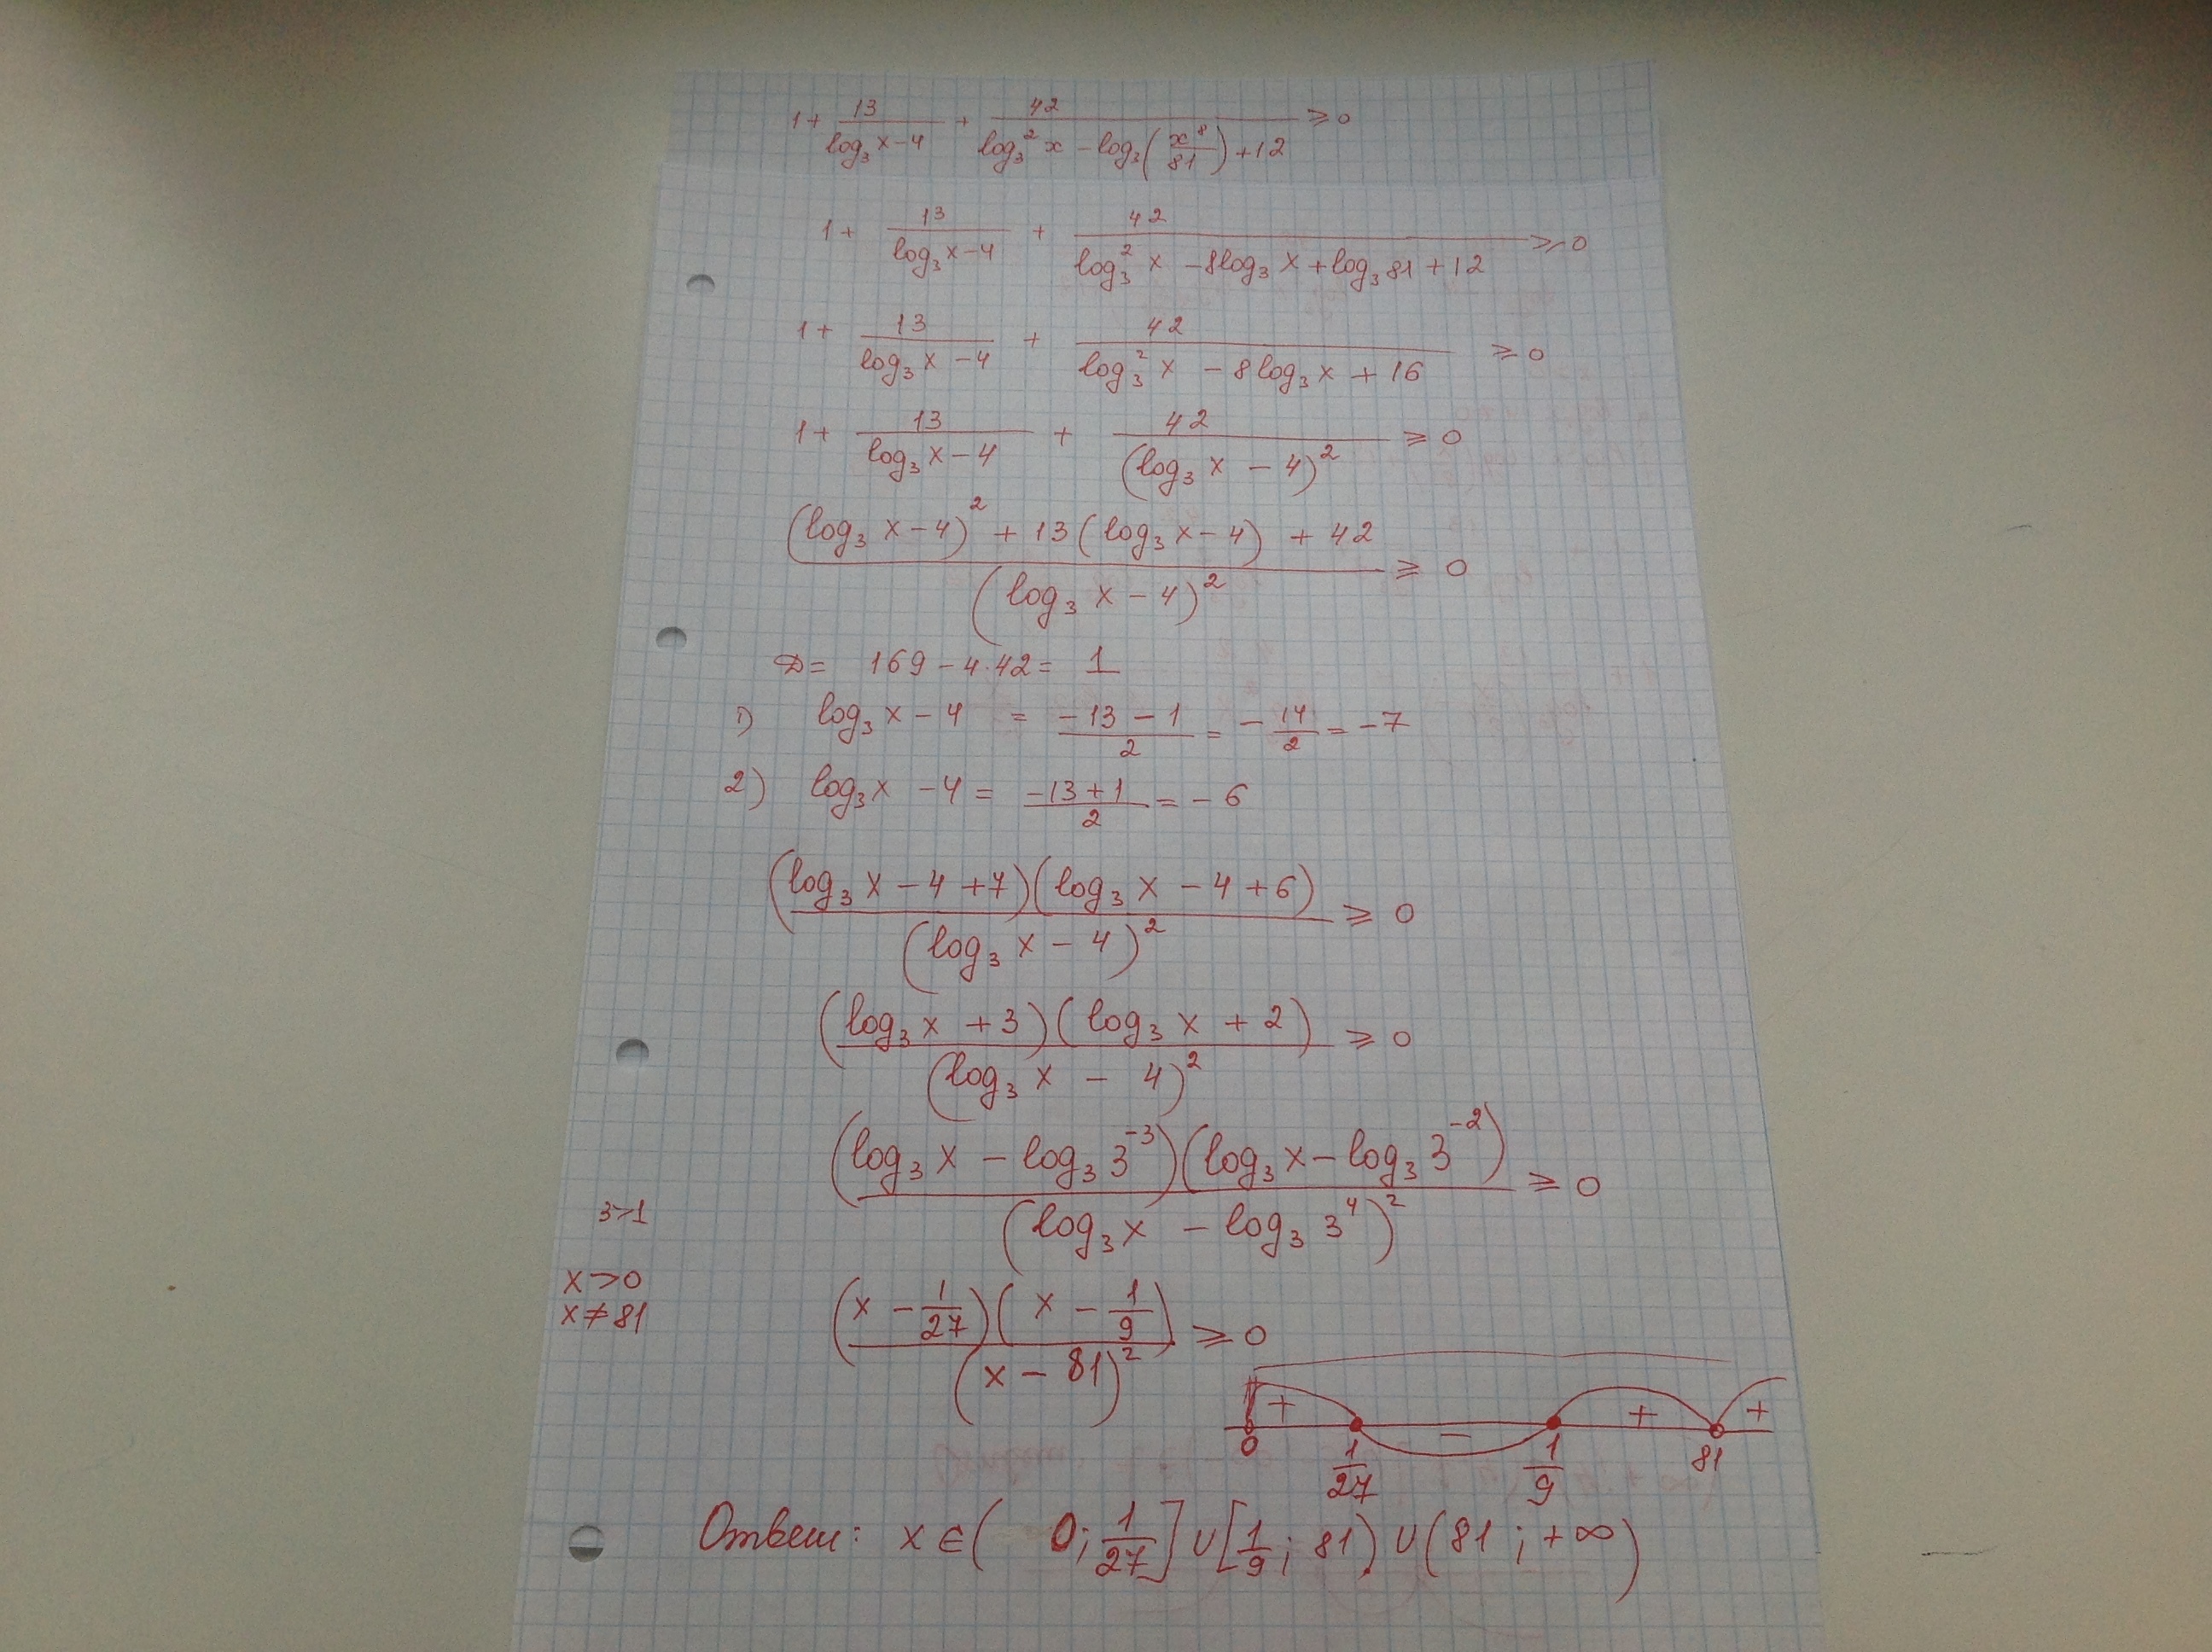 1 + 13/(log₃ x − 4) + 42/(log₃² x − log₃(x⁸/81) + 12) ≥ 0
1 + 13/(log₃ x − 4) + 42/(log₃² x − 8log₃ x + log₃ 81 + 12) ≥ 0
1 + 13/(log₃ x − 4) + 42/(log₃² x − 8log₃ x + 16) ≥ 0
1 + 13/(log₃ x − 4) + 42/(log₃ x − 4)² ≥ 0
((log₃ x − 4)² + 13(log₃ x − 4) + 42)/(log₃ x − 4)² ≥ 0
D = 169 − 4·42 = 1
1) log₃ x − 4 = (−13 − 1)/2 = −14/2 = −7
2) log₃ x − 4 = (−13 + 1)/2 = −6
(log₃ x − 4 + 7)(log₃ x − 4 + 6)/(log₃ x − 4)² ≥ 0
(log₃ x + 3)(log₃ x + 2)/(log₃ x − 4)² ≥ 0
(log₃ x − log₃ 3⁻³)(log₃ x − log₃ 3⁻²)/(log₃ x − log₃ 3⁴)² ≥ 0
3>1
x > 0
x ≠ 81
(x − 1/27)(x − 1/9)/(x − 81)² ≥ 0
+ − + +
0 1/27 1/9 81
Ответ: x ∈ (0; 1/27] ∪ [1/9; 81) ∪ (81; +∞)